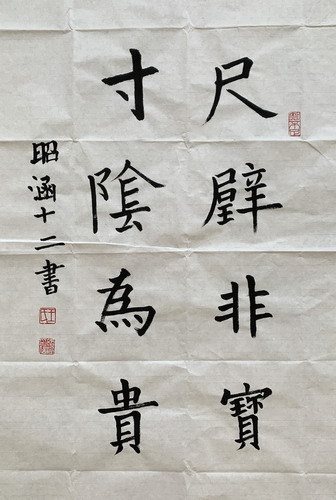 尺璧非寶
寸陰為貴
昭涵十二書